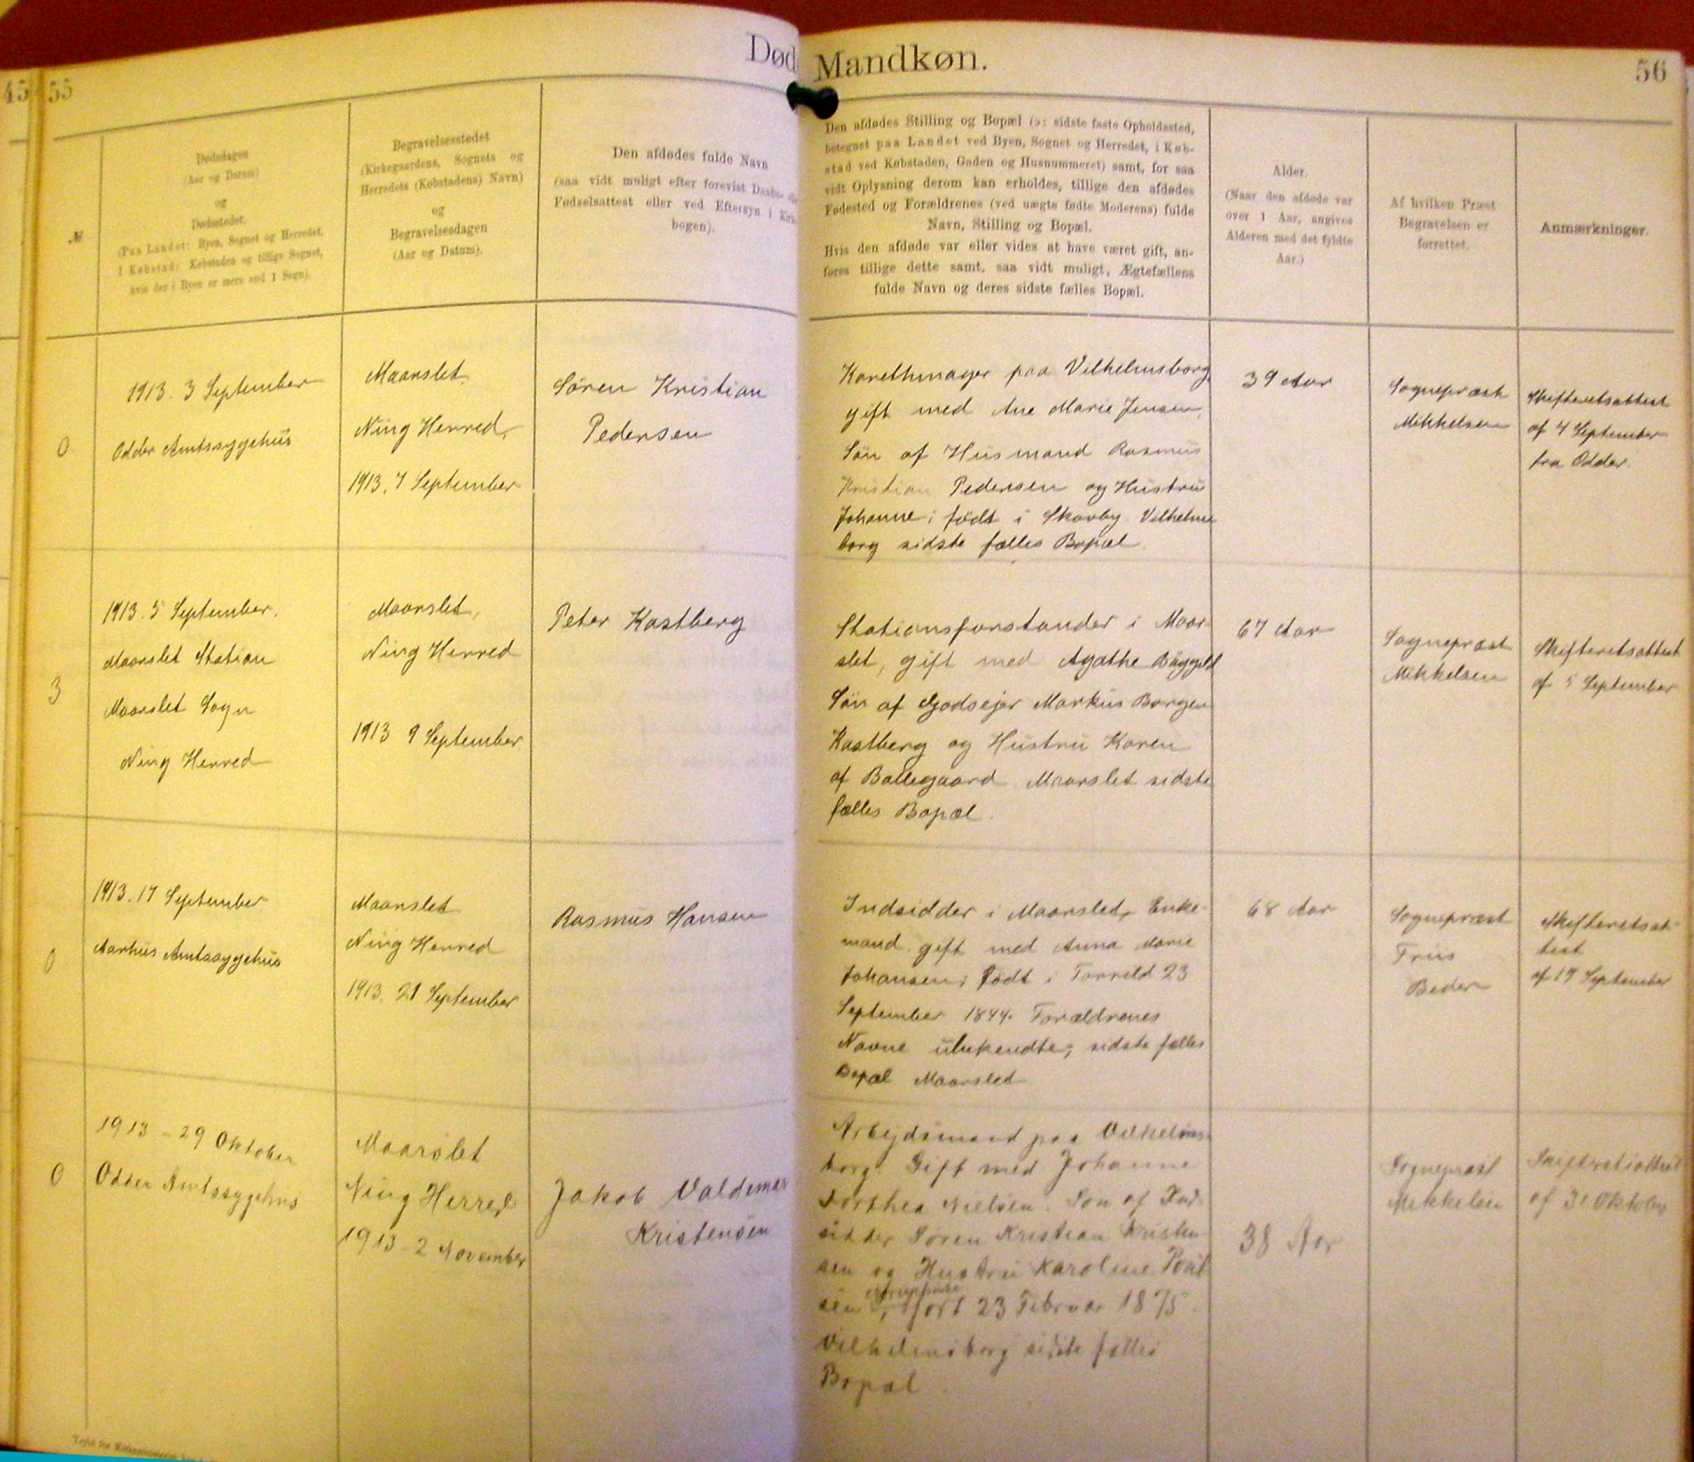 45
55
Død
Mandkøn.
56
№
Dødsdagen
(Aar og Datum)
og
Dødsstedet.
(Paa Landet: Byen, Sognet og Herredet.
I Købstad: Købstaden og tillige Sognet,
hvis der i Byen er mere end 1 Sogn).
Begravelsesstedet
(Kirkegaardens, Sognets og
Herredets (Købstadens) Navn)
og
Begravelsesdagen
(Aar og Datum).
Den afdødes fulde Navn
(saa vidt muligt efter forevist Daabs-
Fødselsattest eller ved Eftersyn i
bogen).
Den afdødes Stilling og Bopæl (ɔ: sidste faste Opholdssted,
betegnet paa Landet ved Byen, Sognet og Herredet, i Køb-
stad ved Købstaden, Gaden og Husnummeret) samt, for saa
vidt Oplysning derom kan erholdes, tillige den afdødes
Fødested og Forældrenes (ved uægte fødte Moderens) fulde
Navn, Stilling og Bopæl.
Hvis den afdøde var eller vides at have været gift, an-
føres tillige dette samt, saa vidt muligt, Ægtefællens
fulde Navn og deres sidste fælles Bopæl.
Alder.
(Naar den afdøde var
over 1 Aar, angives
Alderen med det fyldte
Aar.)
Af hvilken Præst
Begravelsen er
forrettet.
Anmærkninger.
0
1913. 3 September
Odder Amtssygehus
Maarslet
Ning Herred,
1913. 7 September
Søren Kristian
Pedersen
Karethmager paa Vilhelmsborg
gift med Ane Marie Jensen,
Søn af Husmand Rasmus
Kristian Pedersen og Hustru
Johanne; født i Skovby. Vilhelms
borg sidste fælles Bopæl.
39 Aar
Sognepræst
Mikkelsen
Skifteretsattest
af 4 September
fra Odder.
3
1913. 5 September.
Maarslet Station
Maarslet Sogn
Ning Herred
Maarslet,
Ning Herred
1913 9 September
Peter Kastberg
Stationsforstander i Maar-
slet, gift med Agathe Bøggild
Søn af Godsejer Markus Borgen
Kastberg og Hustru Karen
af Ballegaard. Maarslet sidste
fælles Bopæl.
67 Aar
Sognepræst
Mikkelsen
Skifteretsattest
af 5 September
0
1913. 17 September
Aarhus Amtssygehus
Maarslet
Ning Herred
1913. 21 September
Rasmus Hansen
Indsidder i Maarslet, Enke-
mand. gift med Anna Marie
Johansen; født i Torrild 23
September 1844. Forældrenes
Navne ubekendte; sidste fælles
Bopæl Maarslet
68 Aar
Sognepræst
Friis
Beder
Skifteretsat-
test
af 19 September
0
1913 - 29 Oktober
Odder Amtssygehus
Maarslet
Ning Herred
1913 - 2 November
Jakob Valdemar
Kristensen
Arbejdsmand paa Vilhelms-
borg. Gift med Johanne
Dorthea Nielsen. Søn af Ind-
sidder Søren Kristian Kristen-
sen og Hustru Karoline Poul
sen, født 23 Februar 1875.
Vilhelmsborg sidste fælles
Bopæl.
38 Aar
Sognepræst
Mikkelsen
Skifteretsattest
af 31 Oktober